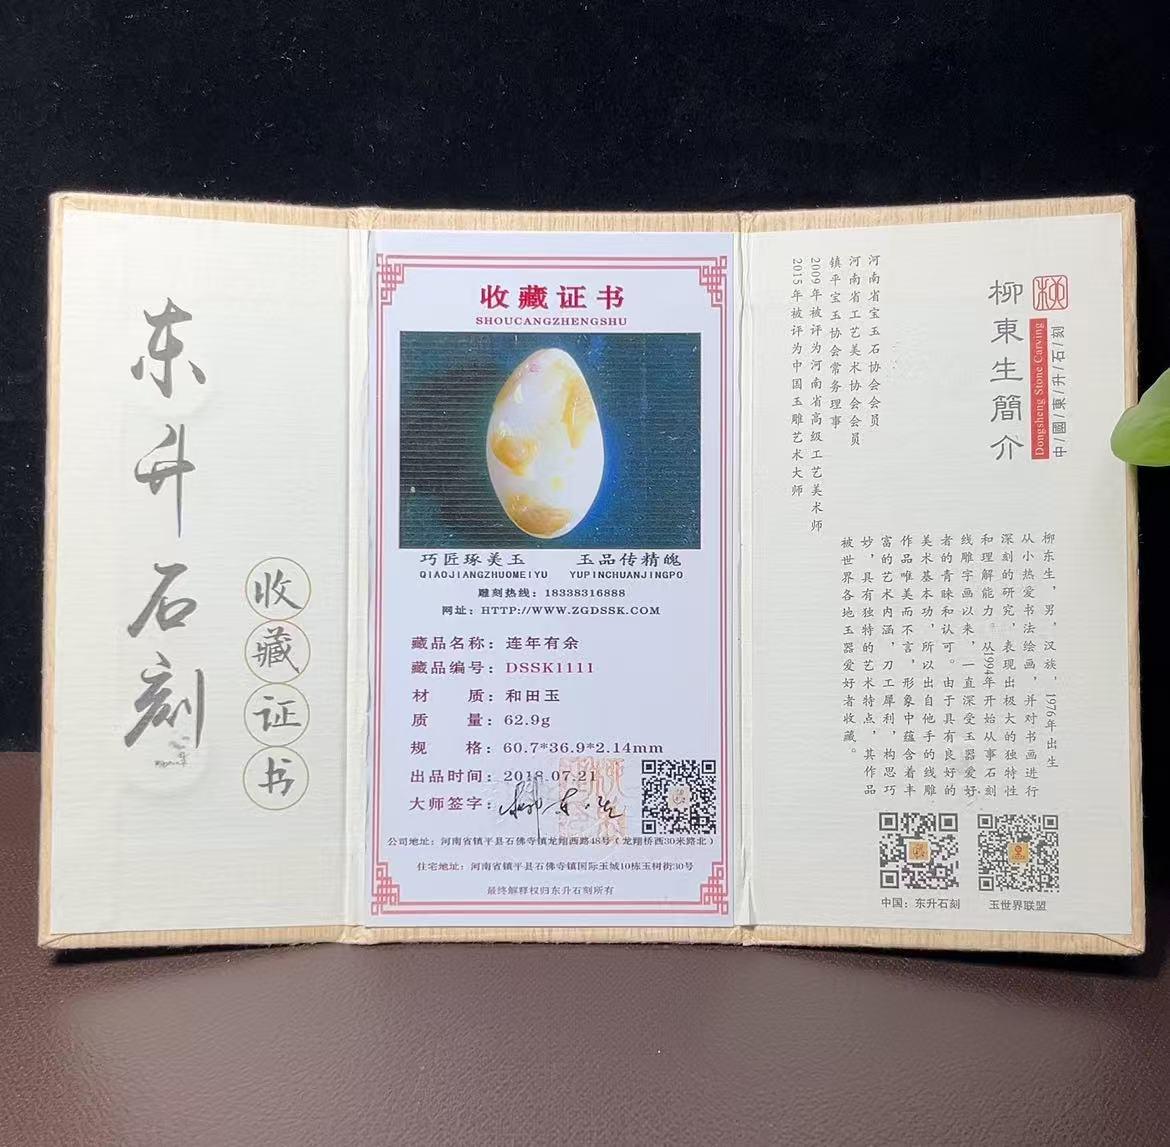 东升石刻
收藏证书
收藏证书
SHOUCANGZHENGSHU
巧匠琢美玉 玉品传精魄
QIAOJIANGZHUOMEIYU YUPINCHUANJINGPO
雕刻热线：18338316888
网址：HTTP://WWW.ZGDSSK.COM
藏品名称：连年有余
藏品编号：DSSK1111
材 质：和田玉
质 量：62.9g
规 格：60.7*36.9*2.14mm
出品时间：2018.07.21
大师签字：柳东生
公司地址：河南省镇平县石佛寺镇龙翔西路48号（龙翔桥西30米路北）
住宅地址：河南省镇平县石佛寺镇国际玉城10栋玉柯街30号
最终解释权归东升石刻所有
中/國/東/升/石/刻
Dongsheng Stone Carving
柳東生簡介
河南省宝玉石协会会员
河南省工艺美术协会会员
镇平宝玉协会常务理事
2009年被评为河南省高级工艺美术师
2015年被评为中国玉雕艺术大师
柳东生，男，汉族，1976年出生
从小热爱书法绘画，并对书画进行
深刻的研究，表现出极大的独特性
和理解能力。从1994年开始从事石刻
线雕字画以来，一直深受玉器爱好
者的青睐和认可。由于具有良好的
美术基本功，所以出自他手的线雕
作品唯美而不言，形象中蕴含着丰
富的艺术内涵，刀工犀利，构思巧
妙，具有独特的艺术特点，其作品
被世界各地玉器爱好者收藏。
中国：东升石刻
玉世界联盟